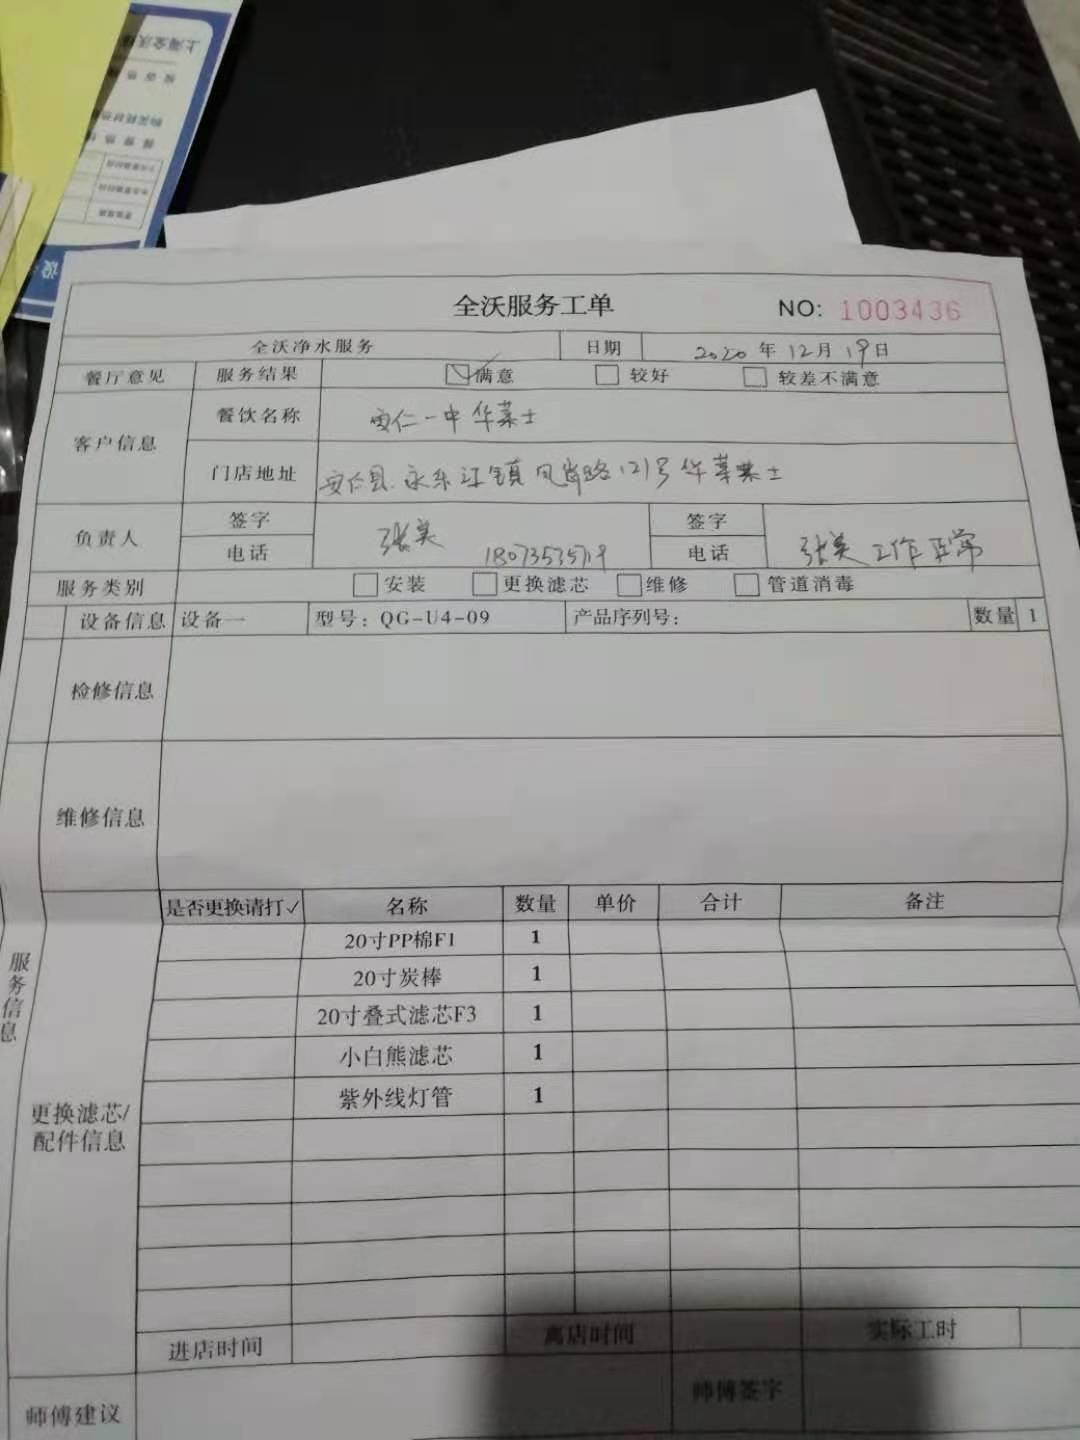 上海全沃
全沃服务工单 NO: 1003436
全沃净水服务 日期 2020 年 12 月 19 日
餐厅意见 服务结果 ☑ 满意 □ 较好 □ 较差不满意
客户信息 餐饮名称 安仁一中华莱士
门店地址 安仁县永乐江镇凤岗路121号华莱士
负责人 签字 张美 签字
电话 电话 张美 工作正常
服务类别 □ 安装 □ 更换滤芯 □ 维修 □ 管道消毒
设备信息 设备一 型号：QG-U4-09 产品序列号： 数量 1
检修信息
维修信息
服务信息
是否更换请打√ 名称 数量 单价 合计 备注
20寸PP棉F1 1
20寸炭棒 1
20寸叠式滤芯F3 1
小白熊滤芯 1
紫外线灯管 1
更换滤芯/
配件信息
进店时间 离店时间 实际工时
师傅建议 师傅签字